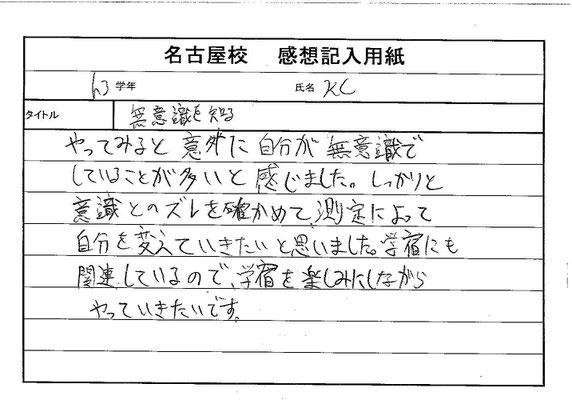 名古屋校 感想記入用紙
h3 学年 氏名 KC
タイトル 無意識を知る
やってみると意外に自分が無意識で
していることが多いと感じました。しっかりと
意識とのズレを確かめて、測定によって
自分を変えていきたいと思いました。学宿にも
関連しているので、学宿を楽しみにしながら
やっていきたいです。